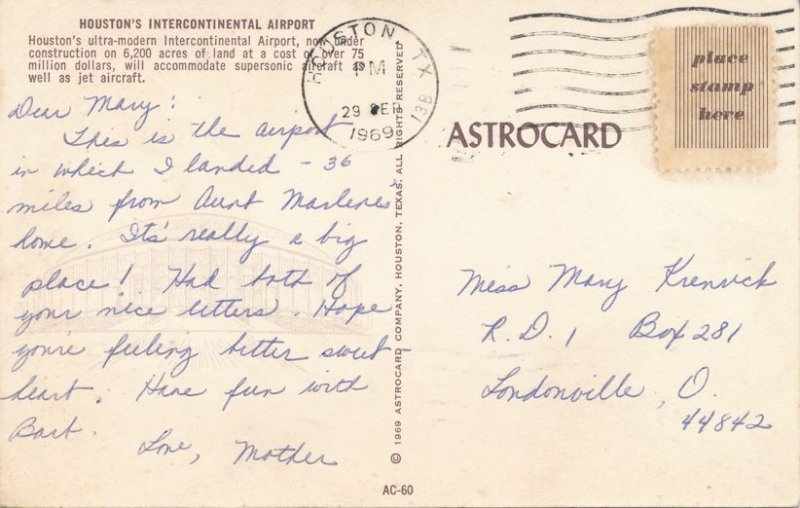 HOUSTON'S INTERCONTINENTAL AIRPORT
Houston's ultra-modern Intercontinental Airport, now under
construction on 6,200 acres of land at a cost of over 75
million dollars, will accommodate supersonic aircraft as
well as jet aircraft.
Dear Mary:
This is the airport
in which I landed - 36
miles from Aunt Marlene's
home. It's really a big
place! Had both of
your nice letters. Hope
you're feeling better sweet-
heart. Have fun with
Bart.
Love, Mother
© 1969 ASTROCARD COMPANY, HOUSTON, TEXAS. ALL RIGHTS RESERVED
AC-60
HOUSTON TX
PM
29 SEP
1969
13B
ASTROCARD
place
stamp
here
Miss Mary Krenrick
R.D. 1 Box 281
Londonville, O.
44842